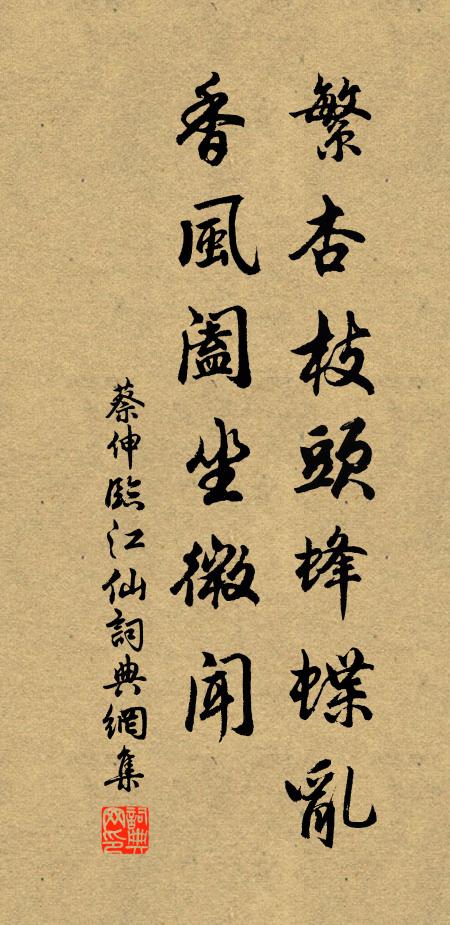 繁杏枝頭蜂蝶亂
香風闔坐微聞
蔡伸臨江仙詞典網集
詞典网印